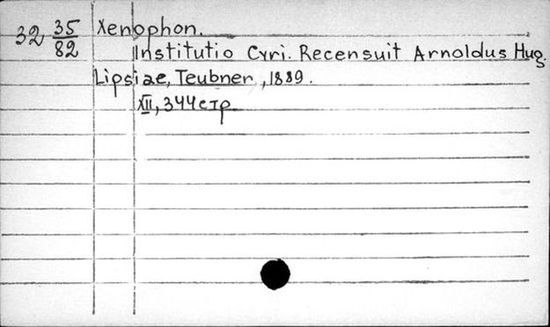 32 35/82 Xenophon.
Institutio Cyri. Recensuit Arnoldus Hug.
Lipsiae, Teubner, 1889.
XII, 344 стр